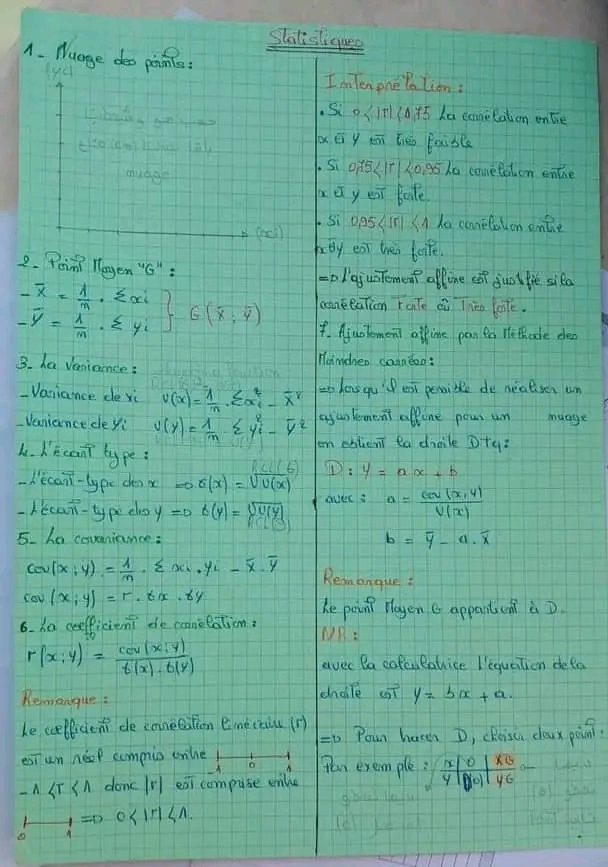 Statistiques
1- Nuage des points:
(yi)
(xi)
2- Point Moyen "G":
- x̄ = 1/n . Σxi
- ȳ = 1/n . Σ yi } G(x̄ ; ȳ)
3- La Variance:
- Variance de xi V(x) = 1/n . Σxi² - x̄²
- Variance de yi V(y) = 1/n . Σ yi² - ȳ²
4- L'écart type:
- L'écart-type des x => σ(x) = √V(x)
- L'écart-type des y => σ(y) = √V(y)
5- La covariance:
cov(x;y) = 1/n . Σ xi . yi - x̄ . ȳ
cov(x;y) = r . σx . σy
6- La coefficient de corrélation:
r(x;y) = cov(x;y) / σ(x) . σ(y)
Remarque:
Le cœfficient de corrélation linéaire (r)
est un réel compris entre -1 0 1
-1 < r < 1 donc |r| est comprise entre
0 1 => 0 < |r| < 1.
Interprétation:
. Si 0 < |r| < 0,75 La corrélation entre
x et y est très faible
. Si 0,75 < |r| < 0,95 La corrélation entre
x et y est forte.
. Si 0,95 < |r| < 1 La corrélation entre
x et y est très forte.
=> L'ajustement affine est justifié si la
corrélation Forte où Très forte.
7- Ajustement affine par la Méthode des
Moindres carrées:
=> Lorsqu'il est possible de réaliser un
ajustement affine pour un nuage
on obtient la droite D tq:
D: y = ax + b
avec: a = cov(x;y) / V(x)
b = ȳ - a . x̄
Remarque:
Le point Moyen G appartient à D.
NB:
avec la calculatrice l'équation de la
droite est y = bx + a.
=> Pour tracer D, choisir deux point:
Par exemple: x 0 XG
y YG